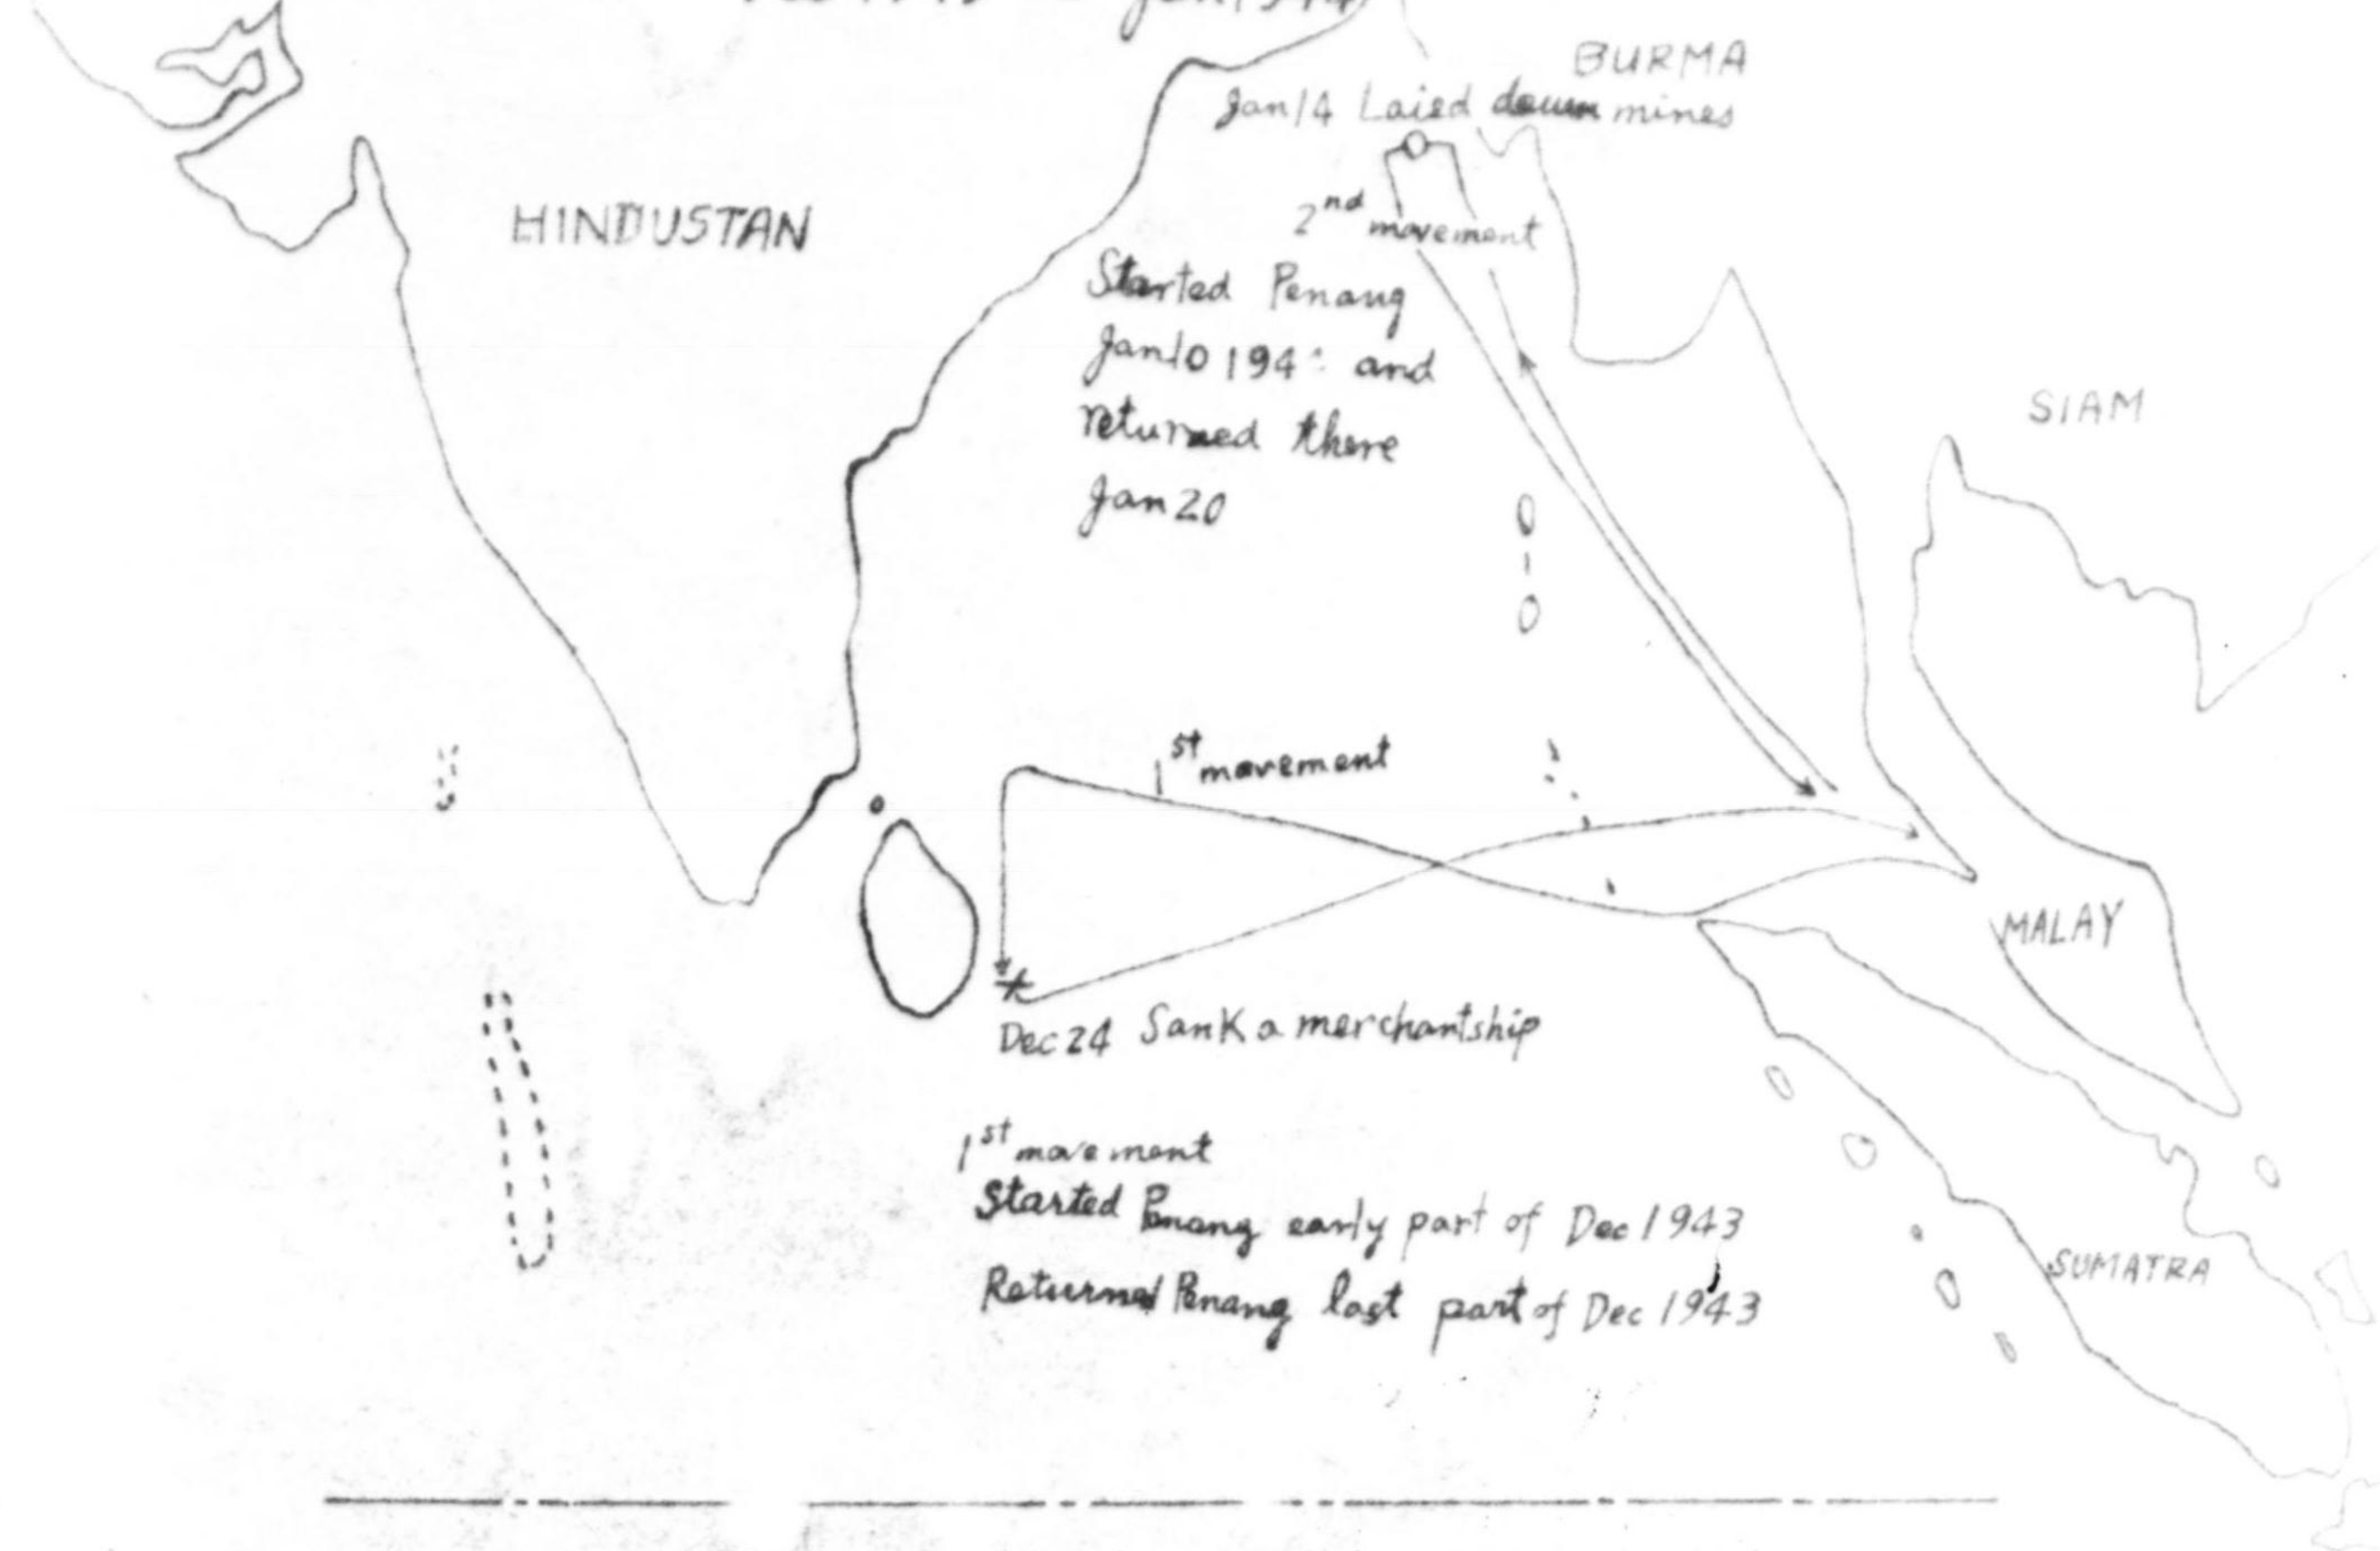 BURMA
Jan 14 Laied down mines
HINDUSTAN
2nd movement
Started Penang
Jan 10 194 and
returned there
Jan 20
SIAM
1st movement
MALAY
Dec 24 Sank a merchantship
1st movement
Started Penang early part of Dec 1943
Returned Penang last part of Dec 1943
SUMATRA